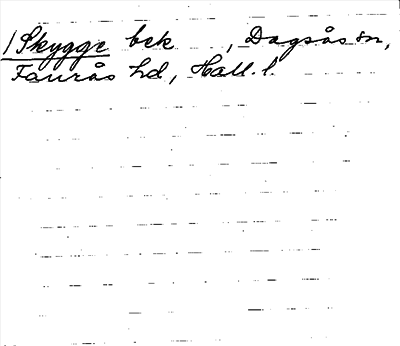 /Skygge bek , Dagsås sn,
Faurås hd, Hall. l.